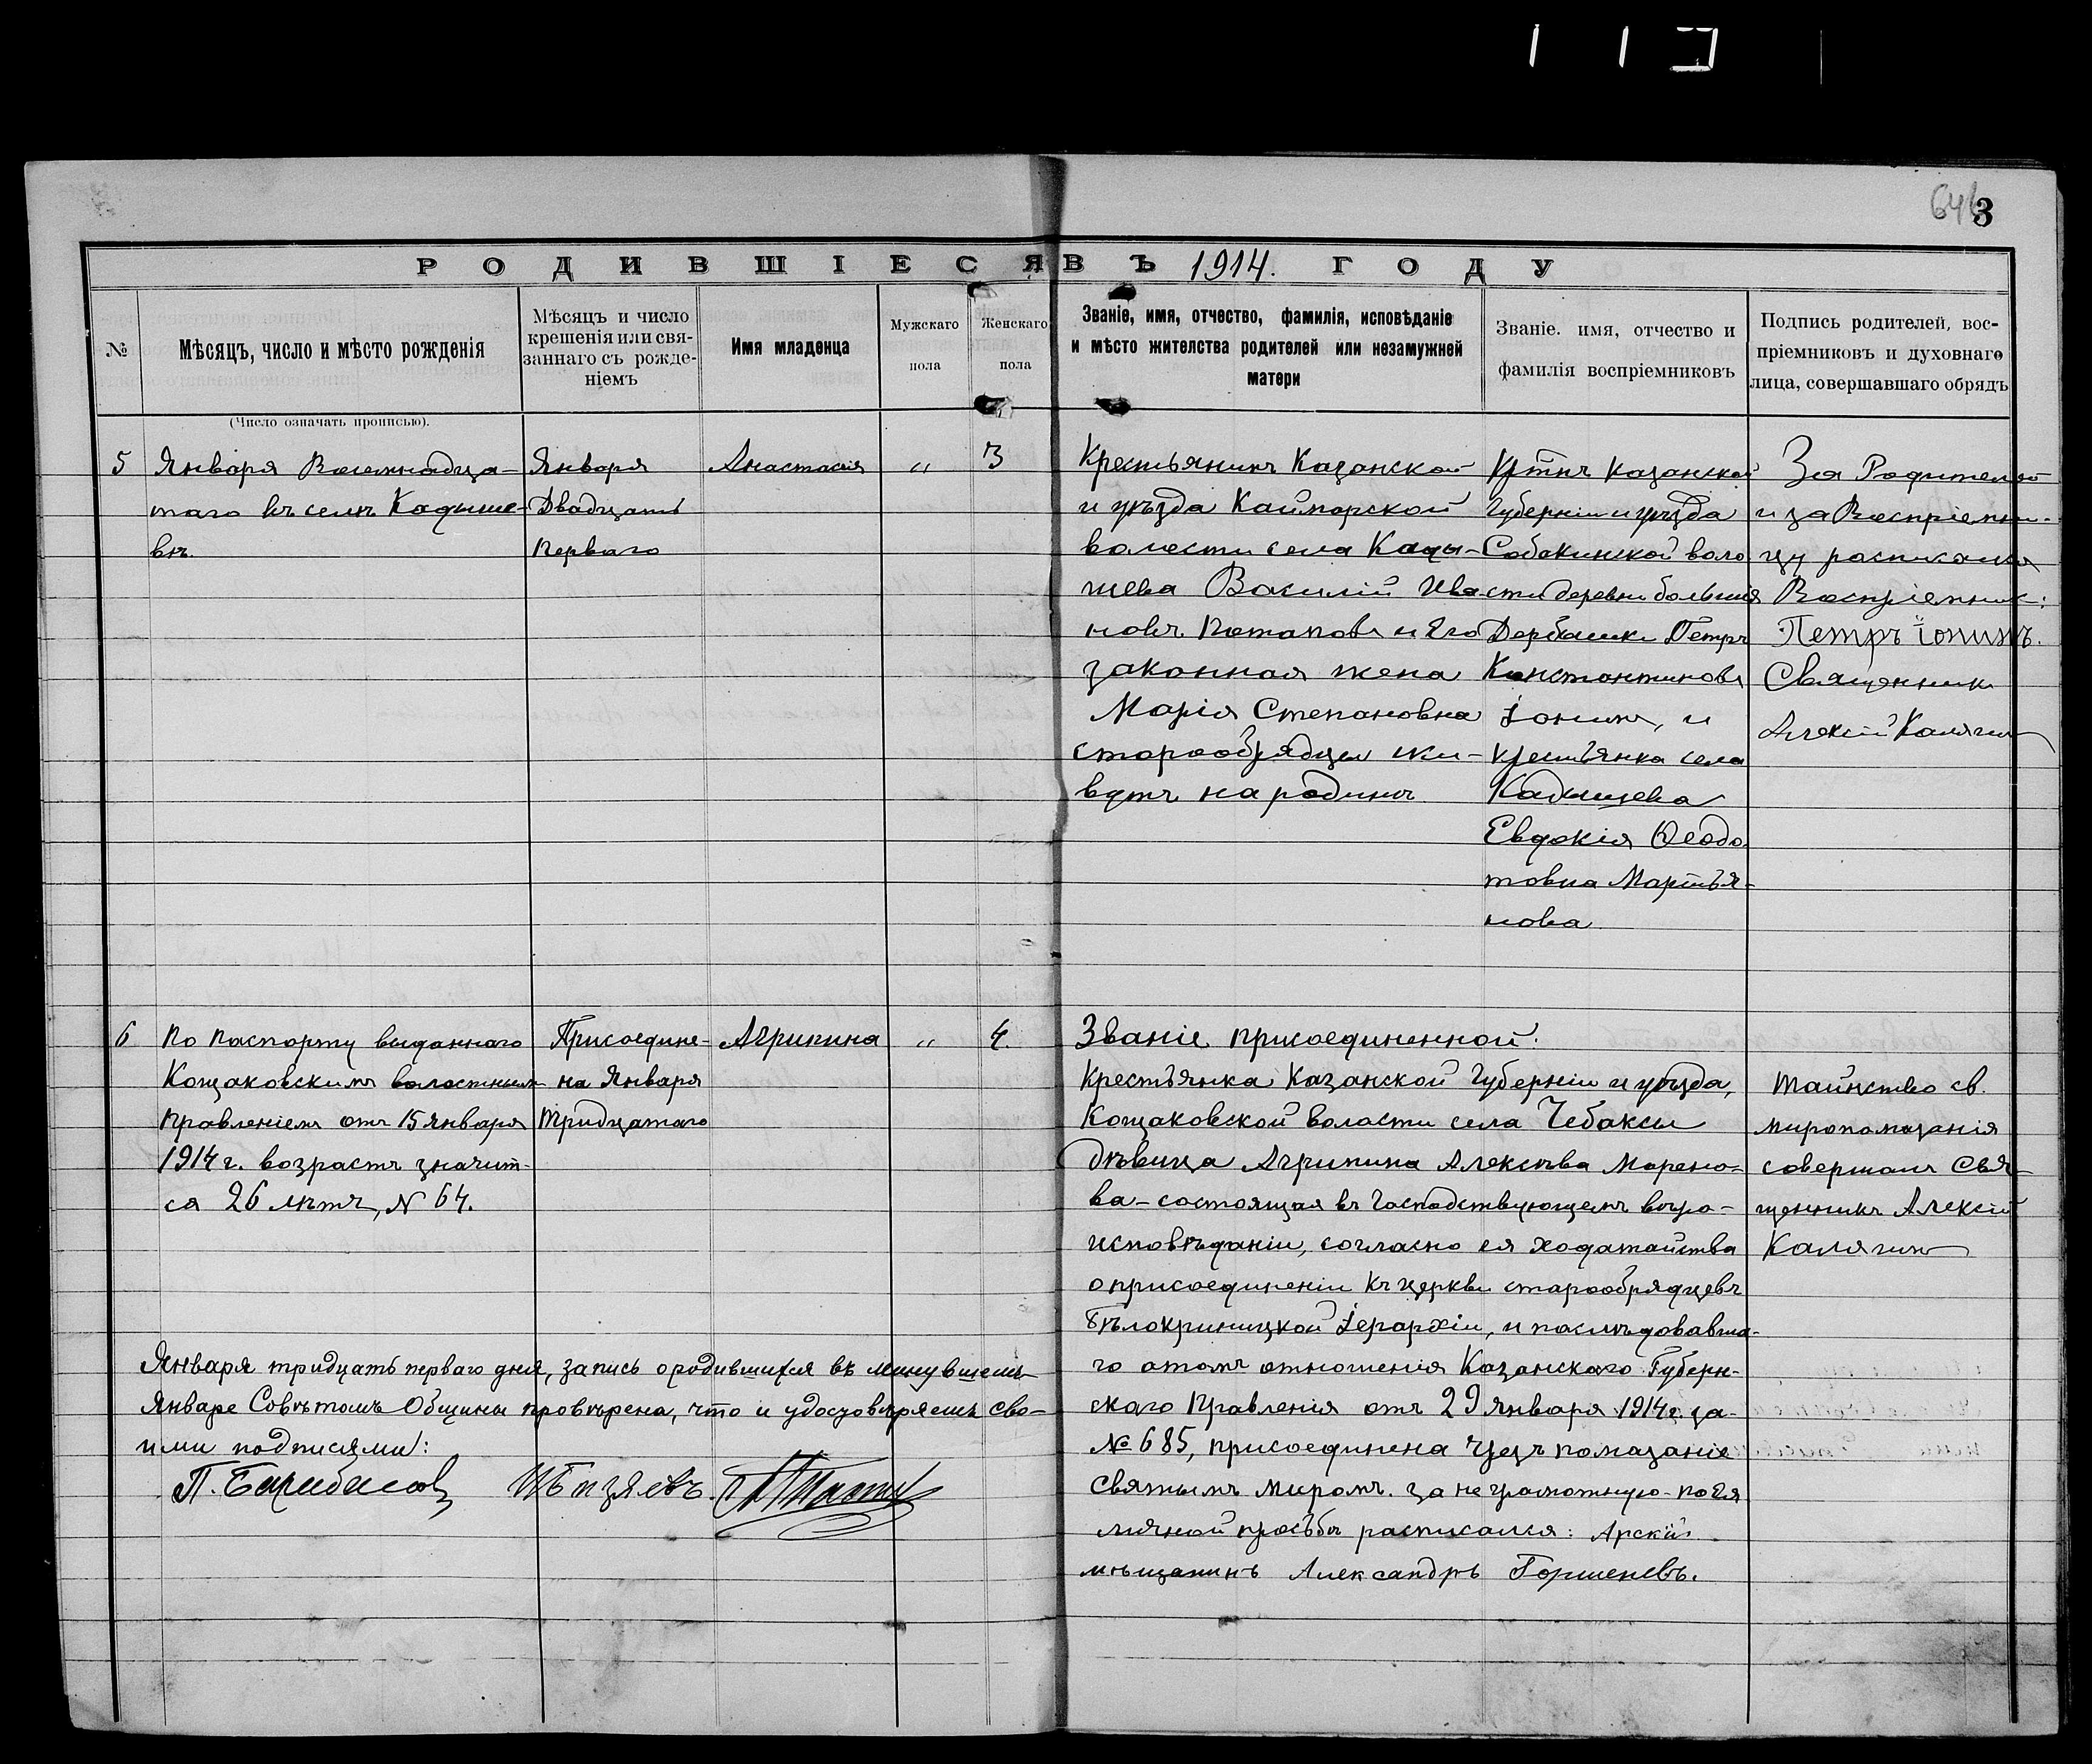 646
3
РОДИВШІЕСЯ ВЪ 1914. ГОДУ
№
Мѣсяцъ, число и мѣсто рожденія
Мѣсяцъ и число
крещенія или свя-
заннаго съ рожде-
ніемъ
Имя младенца
Мужскаго
пола
Женскаго
пола
Званіе, имя, отчество, фамилія, исповѣданіе
и мѣсто жителства родителей или незамужней
матери
Званіе. имя, отчество и
фамилія воспріемниковъ
Подпись родителей, вос-
пріемниковъ и духовнаго
лица, совершавшаго обрядъ
(Число означать прописью).
5
Января Восемнадца-
таго въ селѣ Кадыше-
вѣ.
Января
Двадцать
перваго
Анастасія
„
3
Крестьянинъ Казанской
и уѣзда Каймарской
волости села Кады-
шева Василій Ива
новъ Потаповъ и Его
законная жена
Марія Степановна
старообрядцы жи-
вутъ на родинѣ.
Кртнъ Казанской
Губерніи и уѣзда
Собакинской воло
сти деревни большія
Дербышки Петръ
Константиновъ
Іонинъ, и
крестьянка села
Кадышева
Евдокія Ѳеодо
товна Мартья-
нова
За Родителей
и за Воспріемни-
цу росписался
Воспріемник:
Петръ Іонинъ.
Священникъ
Алексій Калягин
6
По паспорту выданнаго
Кощаковскимъ волостнымъ
правленіемъ отъ 15 января
1914 г. возрастъ значит-
ся 26 лѣтъ, № 64.
Присоедине-
на Января
Тридцатаго
Агрипина
„
4.
Званіе присоединенной:
Крестьянка Казанской Губерніи и уѣзда,
Кощаковской волости села Чебаксы
дѣвица Агрипина Алексѣва Морено-
ва - состоящая въ господствующемъ вѣро-
исповѣданіи, согласно ея ходатайства
о присоединеніи къ церкви старообрядцевъ
Бѣлокриницкой Іерархіи, и послѣдовавша-
го отомъ отношенія Казанскаго Губерн-
скаго Правленія отъ 29 января 1914 г. за
№ 685, присоединена чрезъ помазаніе
святымъ миромъ. за неграмотную - по Ея
личной просьбѣ расписался: Арскій
мѣщанинъ Александръ Горшеневъ.
Таинство св.
миропомазанія
совершалъ Свя-
щенникъ Алексій
Калягинъ
Января тридцать перваго дня, запись о родившихся въ минувшемъ
Январе Совѣтомъ Общины провѣрена, что и удостовѣряемъ сво-
ими подписями: